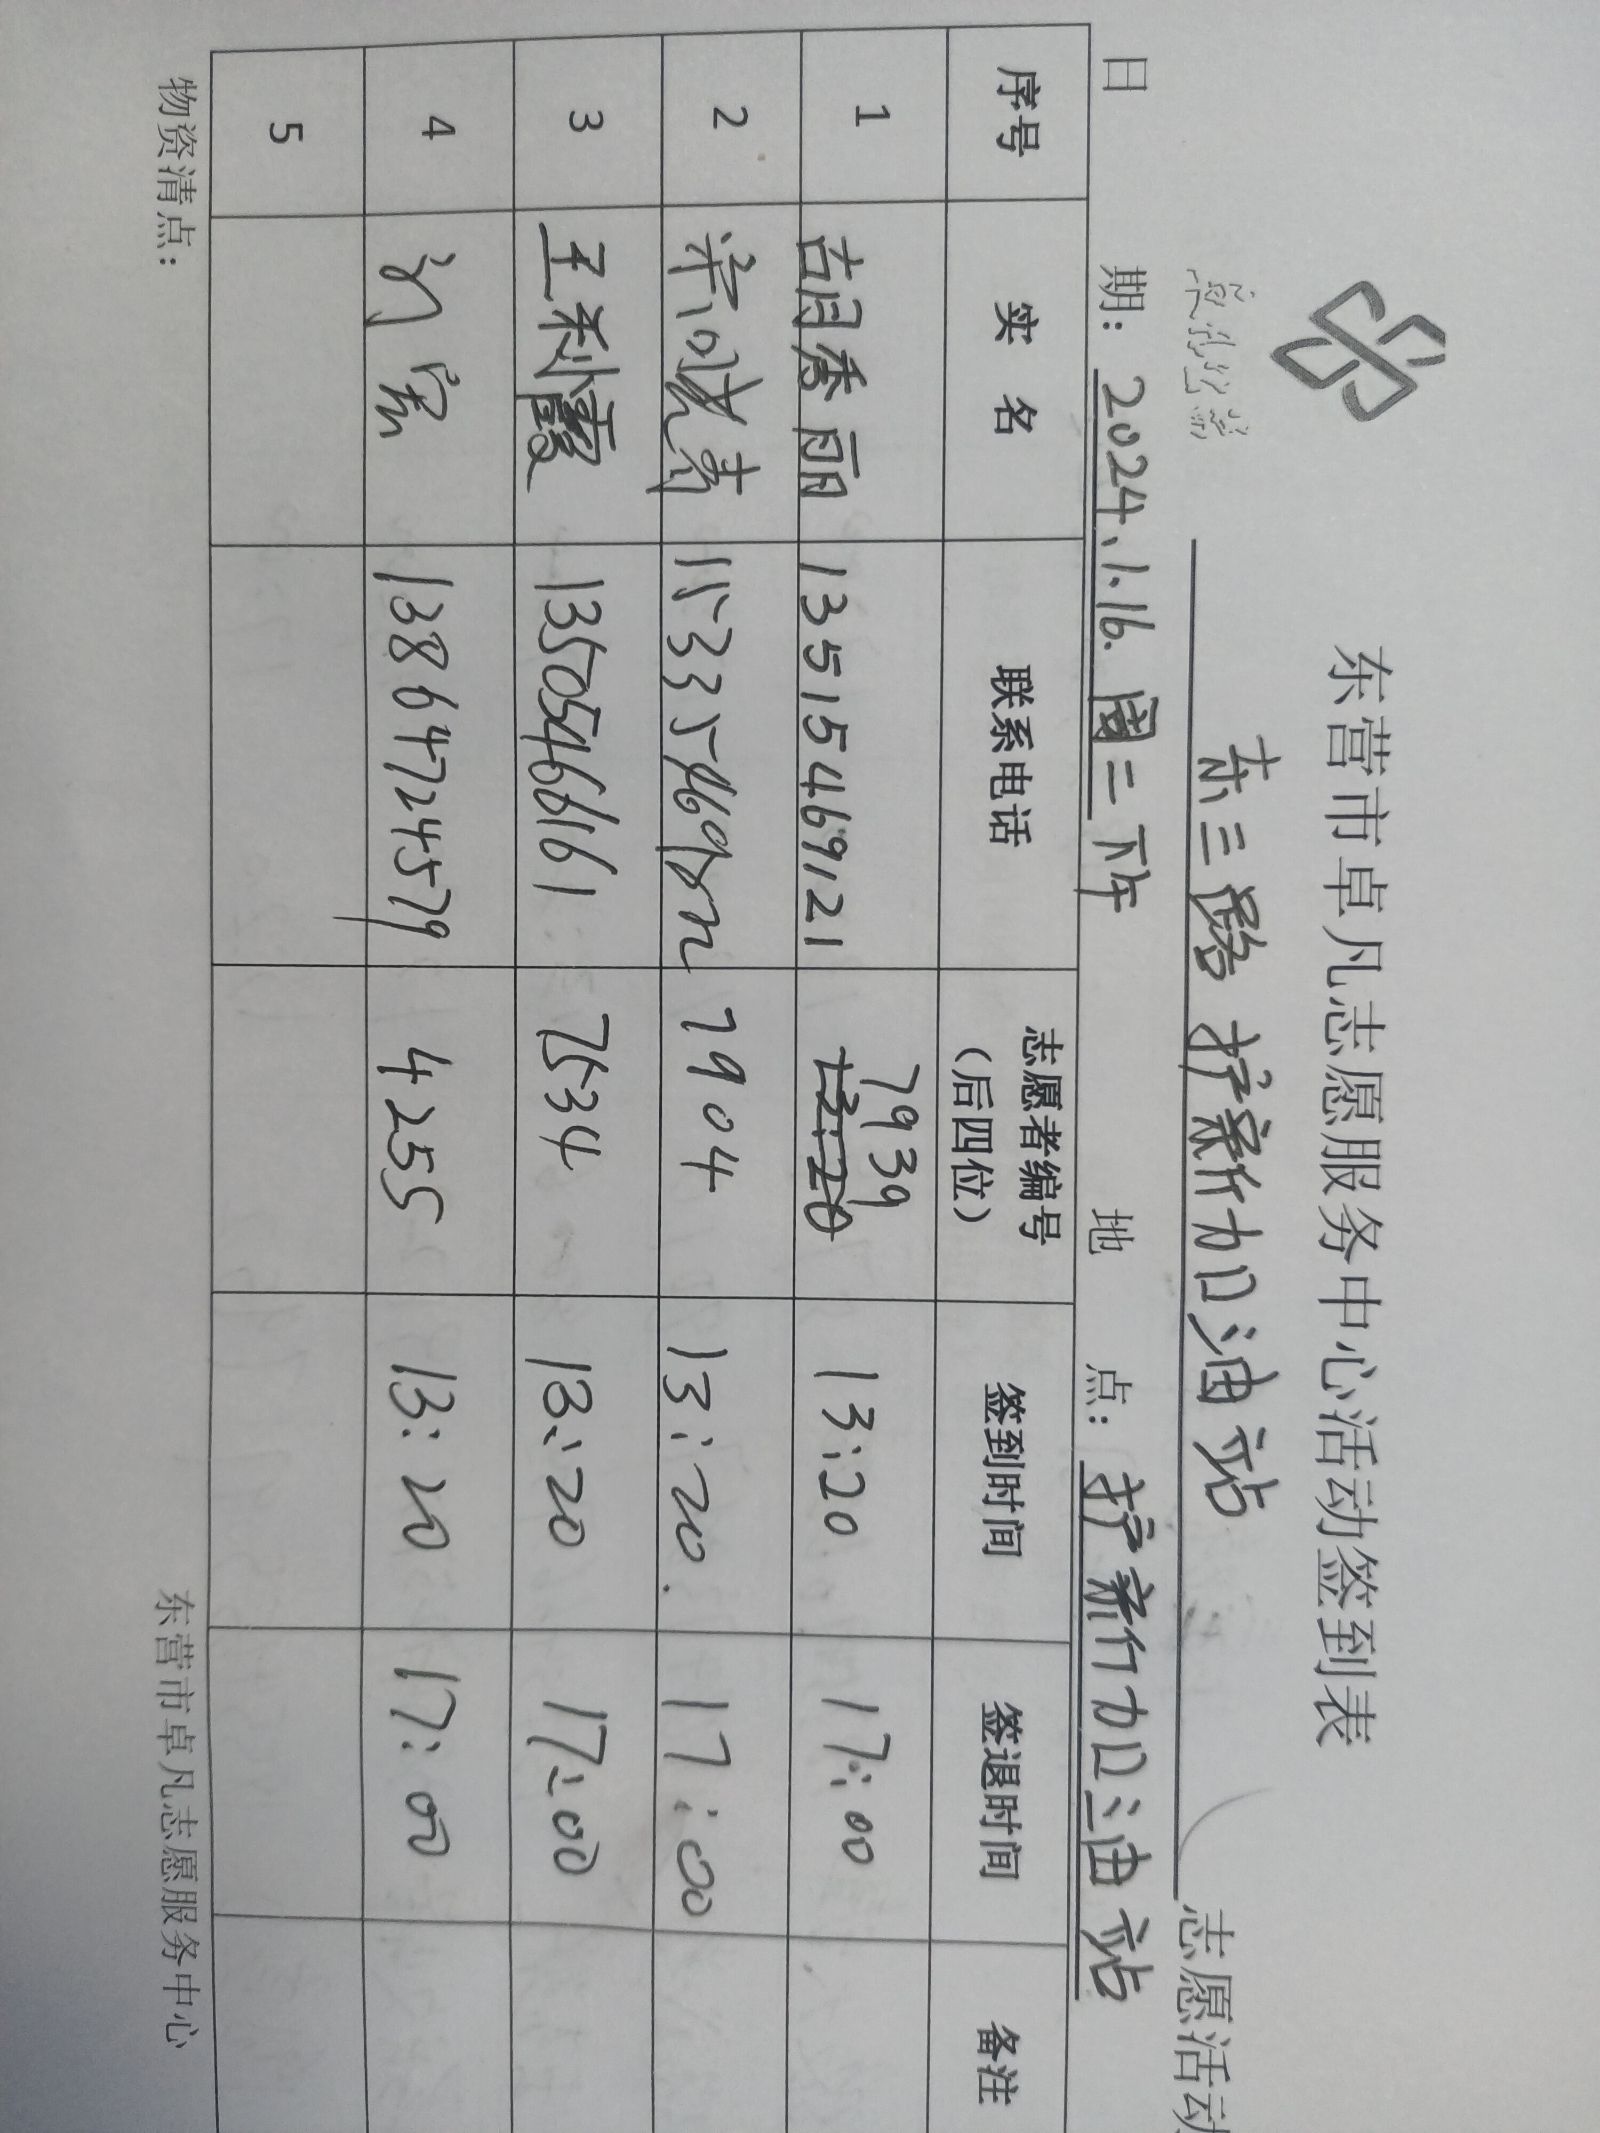 东营市卓凡志愿服务中心活动签到表
东三路 护新加油站 志愿活动
日 期：2024.1.16.周二下午 地 点：护新加油站
序号 实 名 联系电话 志愿者编号（后四位） 签到时间 签退时间 备注
1 胡秀丽 13515469121 7939 13:20 17:00
2 7904 13:20. 17:00
3 王利霞 13505466161 7534 13:20 17:00
4 13864724579 4255 13:20 17:00
5
物资清点： 东营市卓凡志愿服务中心